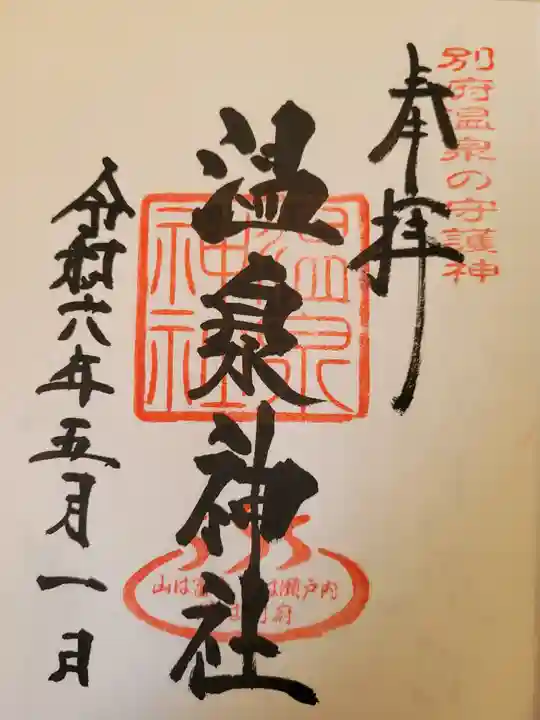 別府温泉の守護神
奉拝
温泉神社
温泉
神社
令和六年五月一日
山は富 は瀬戸内
は別府